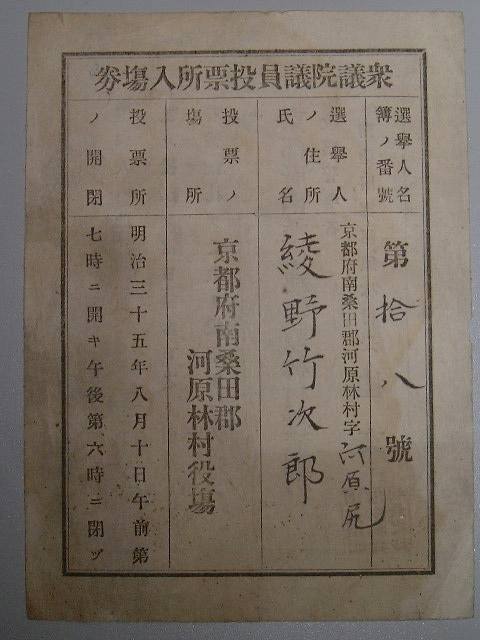 衆議院議員投票所入塲券
選擧人名
簿ノ番號
第拾八號
選擧人
ノ住所
氏名
京都府南桑田郡河原林村字河原尻
綾野竹次郎
投票ノ
塲所
京都府南桑田郡
河原林村役塲
投票所
ノ開閉
明治三十五年八月十日午前第
七時ニ開キ午後第六時ニ閉ヅ